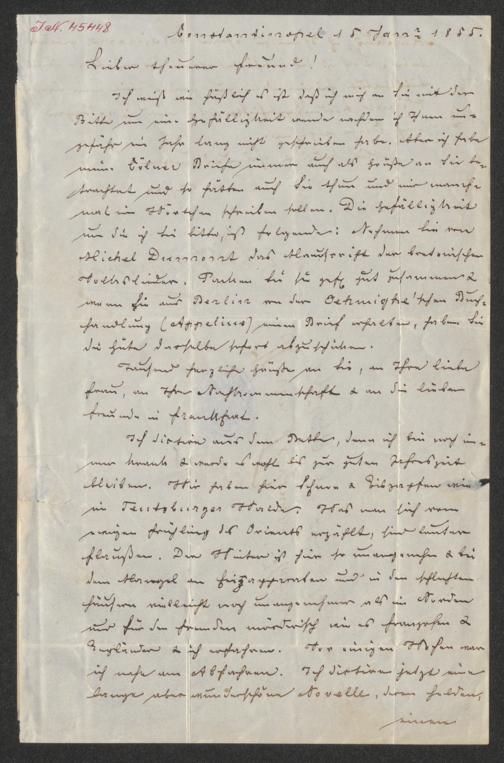 J.N. 45448
Constantinopel 15 Janr 1855.
Lieber theurer Freund!
Ich weiß wie häßlich es ist daß ich mich an Sie mit der
Bitte um eine Gefälligkeit wende nachdem ich Ihnen un-
gefähr ein Jahr lang nicht geschrieben habe. Aber ich habe
meine Cölner Briefe immer auch als Grüße an Sie be-
trachtet und so hätten auch Sie thun und mir manch-
mal ein Wörtchen schreiben sollen. Die Gefälligkeit
um die ich Sie bitte, ist folgende: Nehmen Sie von
Michel Dumont das Manuscript der bretonischen
Volkslieder. Packen Sie sie gefl gut zusammen &
wenn Sie aus Berlin von der Oehmigke'schen Buch-
handlung (Appelius) einen Brief erhalten, haben Sie
die Güte dasselbe sofort abzuschicken.
Tausend herzliche Grüße an Sie, an Ihre liebe
Frau, an Ihre Nachkommenschaft & an die lieben
Freunde in Frankfurt.
Ich dictire aus dem Bette, denn ich bin noch im-
mer krank & werde es wohl bis zur guten Jahreszeit
bleiben. Wir haben hier Schnee & Eiszapfen wie
im Teutoburger Walde. Was man sich vom
ewigen Frühling des Orients erzählt, sind lauter
Flausen. Der Winter ist hier so unangenehm & bei
dem Mangel an Heizapparaten und in den schlechten
Häusern vielleicht noch unangenehmer als im Norden
und für den Fremden mörderisch wie es Franzosen &
Engländer & ich erfahren. Vor einigen Wochen war
ich nahe am Abfahren. Ich dictire jetzt eine
lange aber wunderschöne Novelle, deren Helden,
einen